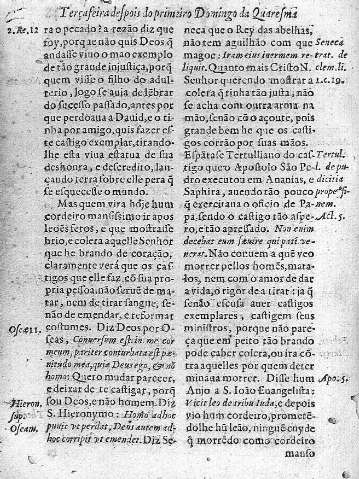 Terça feira despois do primeiro Domingo da Quaresma
2. Re. 12
ra o pecado? a rezão diz que
foy, porque não quis Deos q̃
andasse viuo o mao exemplo
de tão grãde injustiça, porq̃
quem visse o filho do adul-
terio, logo se auia de lẽbrar
do sucesso passado, antes por
que perdoaua a Dauid, e o ti-
nha por amigo, quis fazer es-
te castigo exemplar, tirando-
lhe esta viua estatua de sua
deshonra, e descredito, lan-
çando terra sobre elle pera q̃
se esquecesse o mundo.
Mas quem vira hoje hum
cordeiro mansissimo ir apos
leoẽs feros, e que mostraise
brio, e colera aquelle Senhor
que he brando de coração,
claramente verá que os cas-
tigos que elle faz, cõ sua pro-
pria pessoa, não serue de ma-
tar, nem de tirar sangue, se-
não de emendar, e reformar
Oseæ 11.
costumes. Diz Deos por O-
seas, Conuersum est in me cor
meum, pariter conturbata est pœ
nitudo mea, quia Deus ego, & nõ
homo: Quero mudar parecer,
deixar de te castigar, porq̃
Hieron.
sup.
Oseam.
sou Deos, e não homem. Diz
S. Hieronymo: Homo ad hoc
punit vt perdat, Deus autem ad
hoc corripit vt emendet. Diz Se-
neca que o Rey das abelhas,
não tem aguilhão com que
Seneca
magoe: Iram enim inermem re-
liquit. Quanto mais Cristo N.
trat. de
clem. li.
Senhor querendo mostrar a
1. c. 19.
colera q̃ tinha tão justa, não
se acha com outra arma na
mão, senão cõ açoute, pois
grande bem he que os casti-
gos corrão por suas mãos.
Espãtase Tertulliano do cas-
Tertul.
tigo que o Apostolo São Pe-
l. de pu-
dro executou em Ananias, e
dicitia
Saphira, auendo tão pouco
prope fi-
q̃ exercitaua o oficio de Pa-
nem.
pa, sendo o castigo tão aspe-
Act. 5.
ro, e tão apressado. Non enim
decebat eum sæuire qui pati ve-
nerat. Não conuem a quẽ veo
morrer pellos homẽs, mata-
los, nem com o amor de dar
a vida, o rigor de a tirar: ja q̃
senão escusa auer castigos
exemplares, castigem seus
ministros, porque não pare-
ça que em peito tão brando
pode caber colera, ou ira cõ-
tra aquelles por quem deter
minaua morrer. Disse hum
Apo. 5.
Anjo a S. Ioão Euangelista:
Vicit leo de tribu Iuda, e depois
vio hum cordeiro, promete-
dolhe hũ leão, ninguẽ cuyde
q̃ morrẽdo como cordeiro
manso